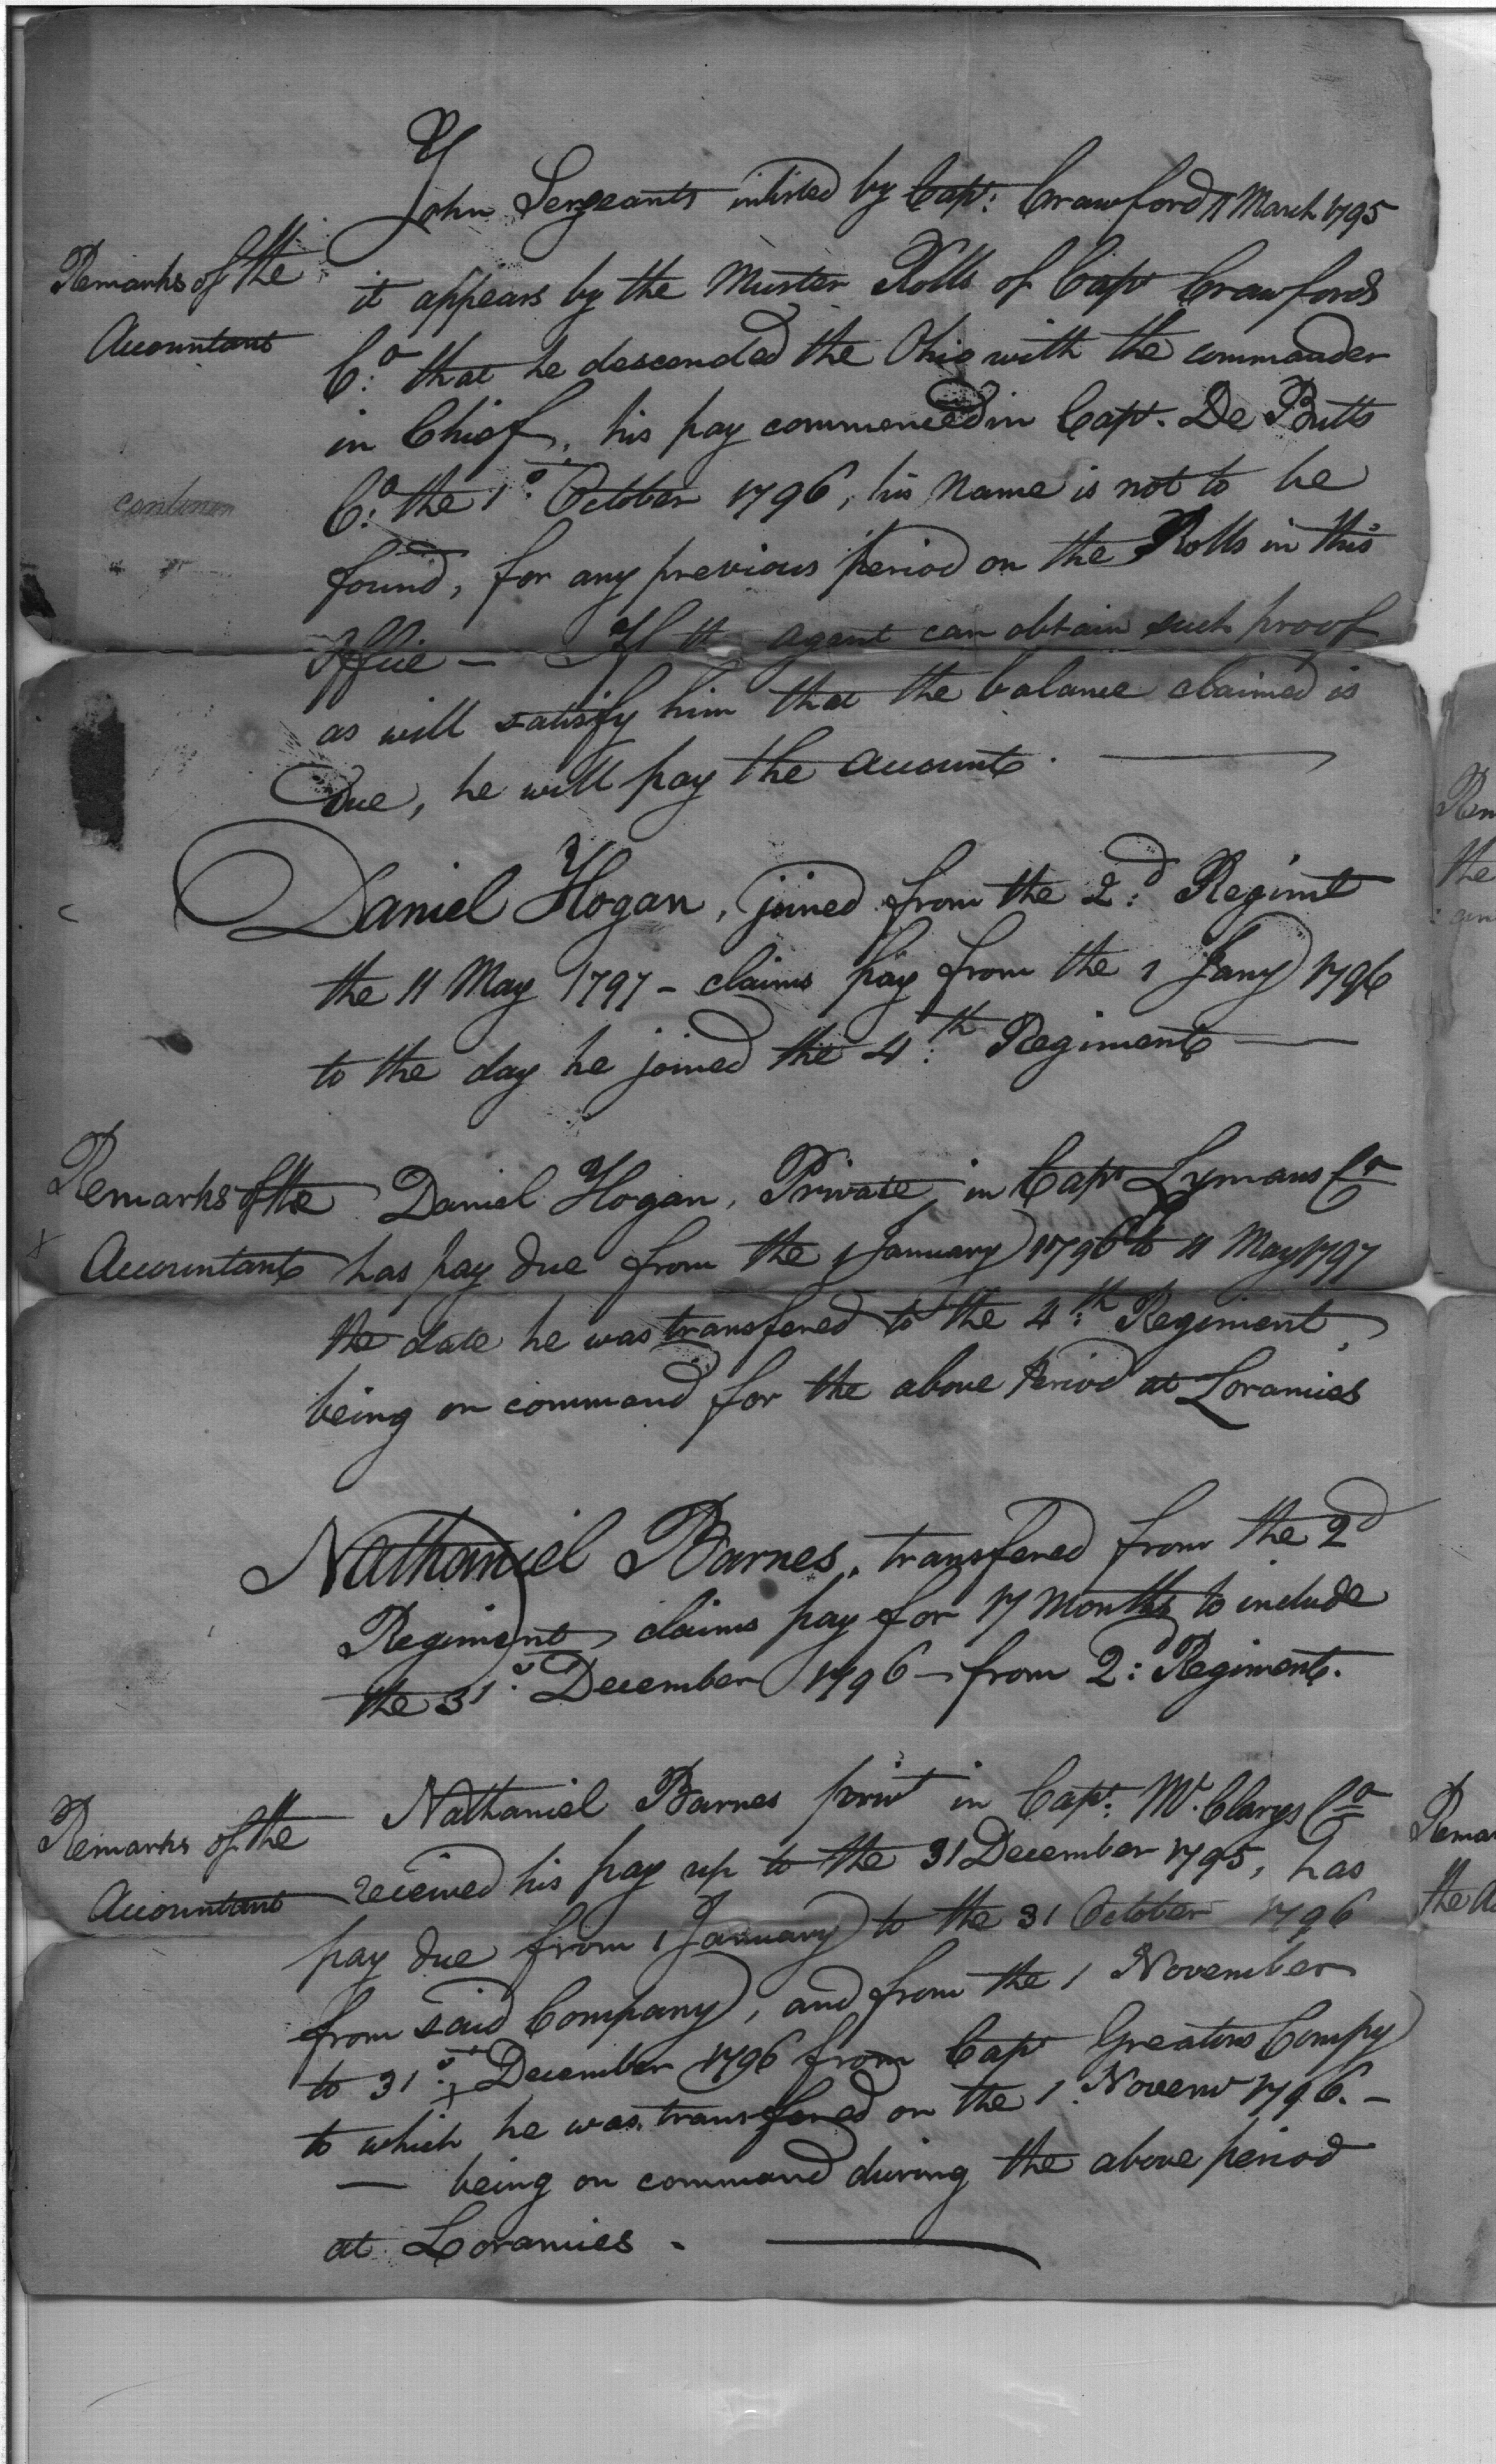 John Sergeants inlisted by Capt: Crawford 11 March 1795
Remarks of the
Accountant
it appears by the Muster Rolls of Capt Crawfords
Co: that he descended the Ohio with the commander
in Chief, his pay commenced in Capt. De Butts
Co: the 1st October 1796, his name is not to be
found, for any previous period on the Rolls in this
Office — If th agent can obtain such proof
as will satisfy him that the balance claimed is
Due, he will pay the account.
Daniel Hogan, joined from the 2d Regimt
the 11 May 1797 - claims pay from the 1 Jany 1796
to the day he joined the 4th Regiment
Remarks of the
Accountant
Daniel Hogan, Private, in Capt Lymans Co
has pay due from the 1 January 1796 to 11 May 1797
the date he was transfered to the 4th Regiment,
being on command for the above Period at Loramies
Nathaniel Barnes, transfered from the 2d
Regiment claims pay for 17 Months to include
the 31st December 1796 - from 2d Regiment.
Remarks of the
Accountant
Nathaniel Barnes privt in Capt: Mc.Clarys Co
received his pay up to the 31 December 1795, has
pay due from 1 January to the 31 October 1796
from said Company, and from the 1 November
to 31st December 1796 from Capt Greatons Compy
to which he was transfered on the 1 Novemr 1796. -
— being on command during the above period
at Loramies.
Rem
the
Remar
the A